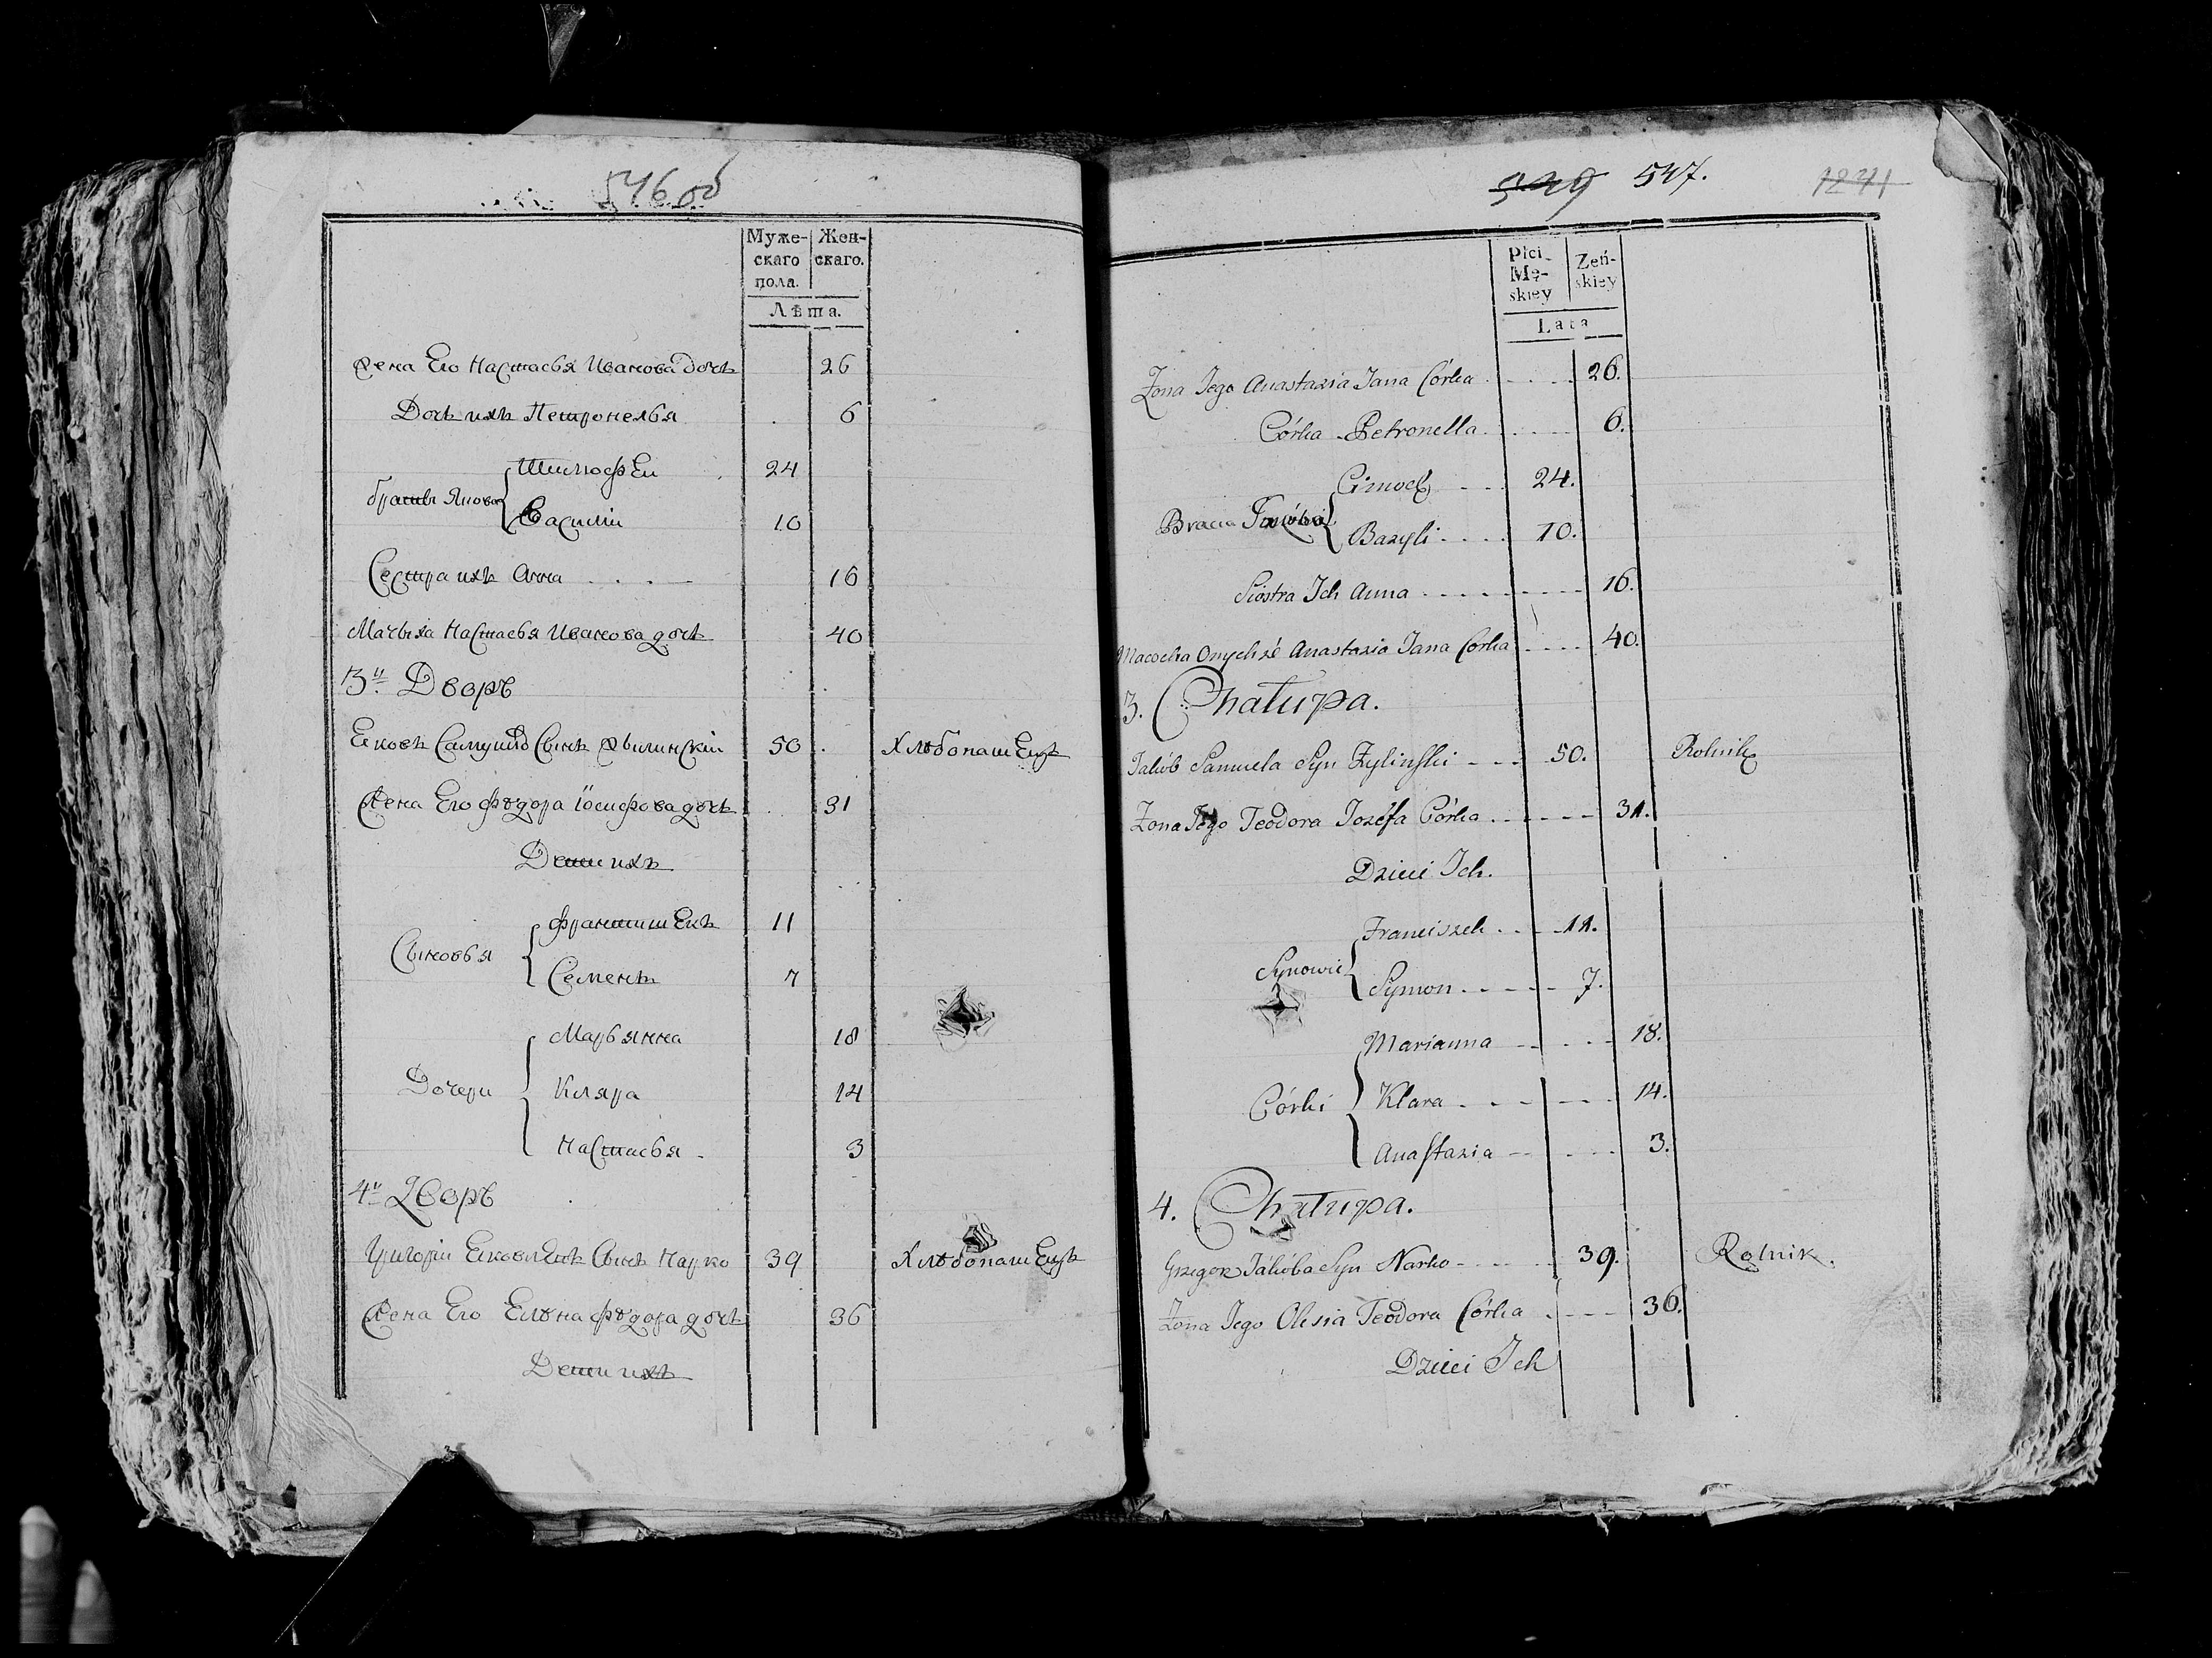 546 об
Муже-
скаго
пола.
Жен-
скаго.
Лѣта.
Жена Его Настасья Иванова дочь 26
Дочь ихъ Петронелья 6
братья Якова
Тимофѣй 24
Василій 10
Сестра ихъ Анна 16
Мачыха Настасья Иванова дочь 40
3й Дворъ
Яковъ Самуила Сынъ Жылинскій 50 Хлѣбопашецъ
Жена Его Фѣдора Іосифова дочь 31
Дети ихъ
Сыновья
Францишекъ 11
Семенъ 7
Дочери
Марьянна 18
Кляра 14
Настасья 3
4й Дворъ
Григорій Яковлевъ Сынъ Нарко 39 Хлѣбопашецъ
Жена Его Елѣна Фѣдора дочь 36
Дети ихъ
549 547. 1241
Płci
Mę-
skiey
Żeń-
skiey
Lata
Żona Jego Anastazia Jana Córka 26.
Córka Petronella 6.
Bracia
Cimoch 24.
Bazyli 10.
Siostra Ich Anna 16.
Macocha Onychże Anastazia Jana Corka 40.
3. Chałupa.
Jakób Samuela Syn Żyliński 50. Rolnik
Żona Jego Teodora Jozefa Córka 31.
Dzieci Ich.
Synowie
Franciszek 11.
Symon 7.
Córki
Marianna 18.
Klara 14.
Anastazia 3.
4. Chałupa.
Grzegorz Jakóba Syn Narko 39. Rolnik.
Żona Jego Olesia Teodora Córka 36.
Dzieci Ich